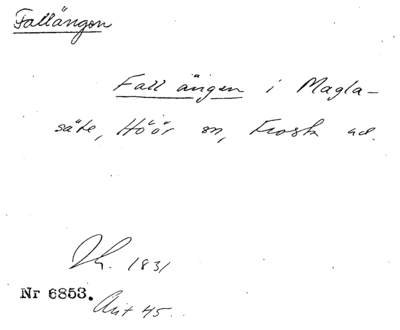 Fallängen
Fall ängen i Magla-
säte, Höör sn, Frosta hd.
Sk. 1831
Nr 6853.
Ant 45.